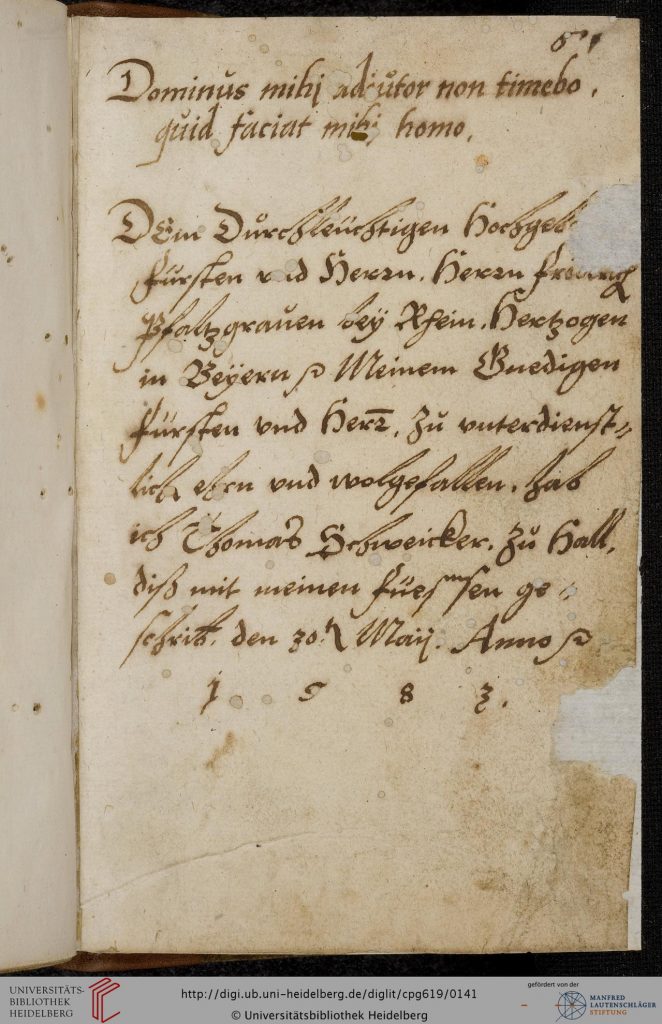 61
Dominus mihi adiutor non timebo,
quid faciat mihi homo.
DEm Durchleuchtigen Hochgeb
Fürsten vnd Herrn. Herrn Fridrich
Pfaltzgrauen bey Rhein. Hertzogen
in Beÿern Meinem Gnedigen
Fürsten vnd Herrn. Zu vnterdienst=
lich ehrn vnd wolgefallen, hab
ich Thomas Schweicker. Zu Hall,
diß mit meinen Füessen ge=
schrib. den 30 Maij. Anno
1 5 8 3.
UNIVERSITÄTS-
BIBLIOTHEK
HEIDELBERG
http://digi.ub.uni-heidelberg.de/diglit/cpg619/0141
© Universitätsbibliothek Heidelberg
gefördert von der
MANFRED
LAUTENSCHLÄGER
STIFTUNG